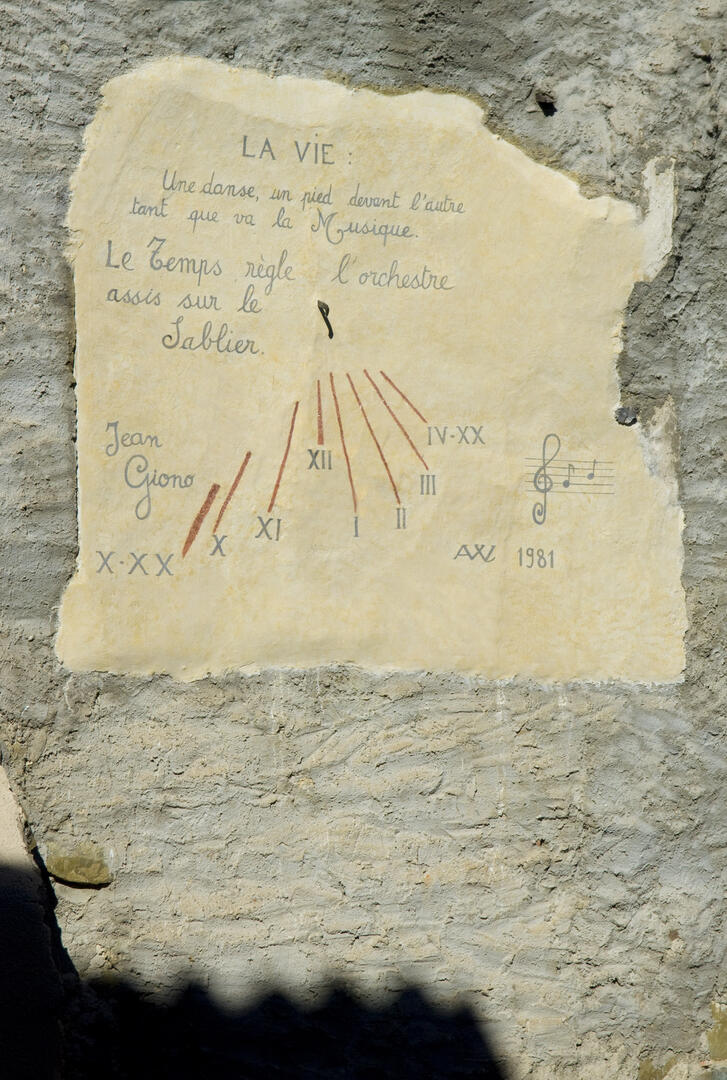 LA VIE :
Une danse, un pied devant l'autre
tant que va la Musique.
Le Temps règle l'orchestre
assis sur le
Sablier.
Jean
Giono
X·XX
X
XI
XII
I
II
III
IV·XX
AW 1981